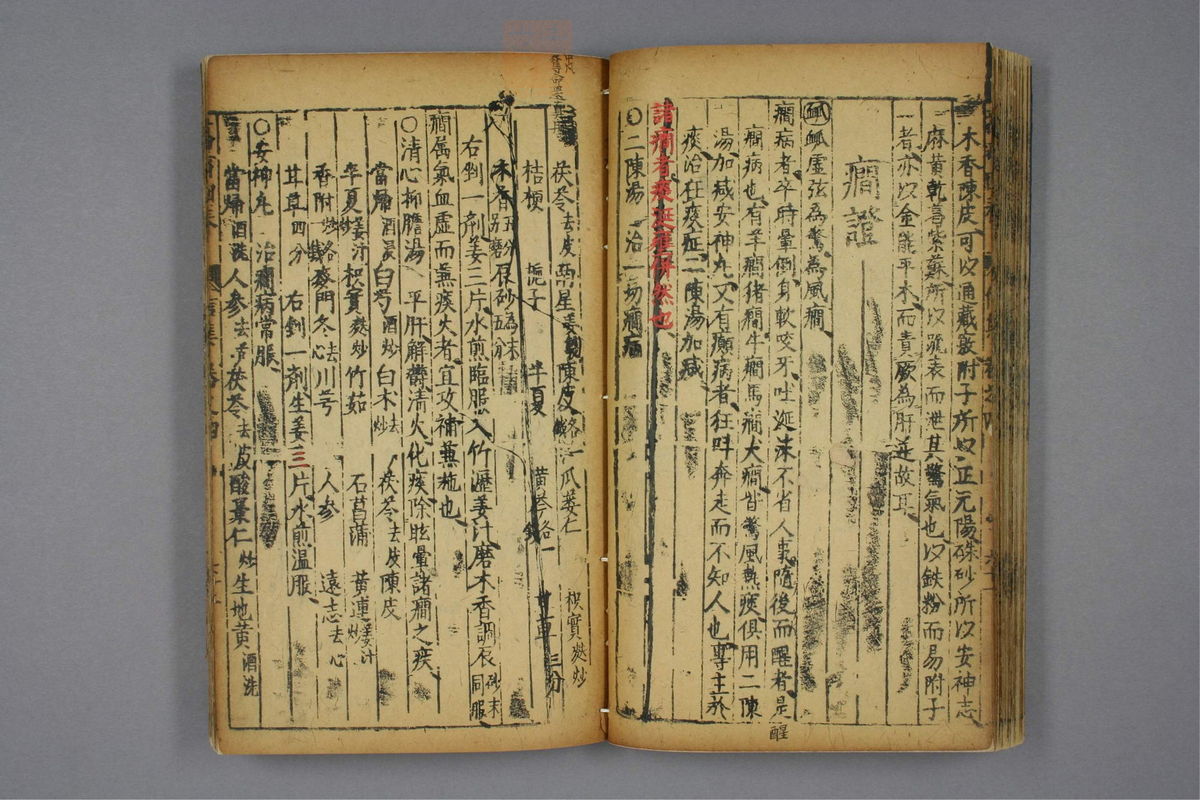 木香陳皮可以通藏發附子所以正元陽硃砂所以安神志
麻黃乾葛紫蘇所以踈表而泄其驚氣也以鉄粉而易附子
者亦以金能平木而責厥為肝逆故耳
癇證
虛弦為驚為風癇
癇病者卒時暈倒身軟咬牙吐涎沫不省人事隨後而醒者是
醒
癇病也有羊癇猪癇牛癇馬癇犬癇皆驚風熱痰俱用二陳
湯加减安神丸又有癲病者狂呌奔走而不知人也專主於
痰治狂痰症二陳湯加减
諸癇者痰
併然也
○二陳湯 治一切癇病
茯苓去皮 南星姜製 陳皮各一 瓜蔞仁 枳實麩炒
桔梗 梔子 半夏 黃芩各一錢 甘草三分
木香五分別磨 辰砂為末五分
右剉一劑姜三片水煎臨服入竹瀝姜汁磨木香調辰砂末同服
癇属氣血虛而兼痰火者宜攻補兼施也
○清心抑膽湯 平肝解鬱清火化痰除眩暈諸癇之疾
當歸酒浸 白芍酒炒 白朮去炒 茯苓去皮 陳皮
半夏姜汁炒 枳實麩炒 竹茹 石菖蒲 黃連姜汁炒
香附炒各一錢 麥門冬去心 川芎 人參 遠志去心
甘草四分 右剉一劑生姜三片水煎温服
○安神丸 治癇病常服
當歸酒洗 人參去 茯苓去皮 酸棗仁炒 生地黃酒洗